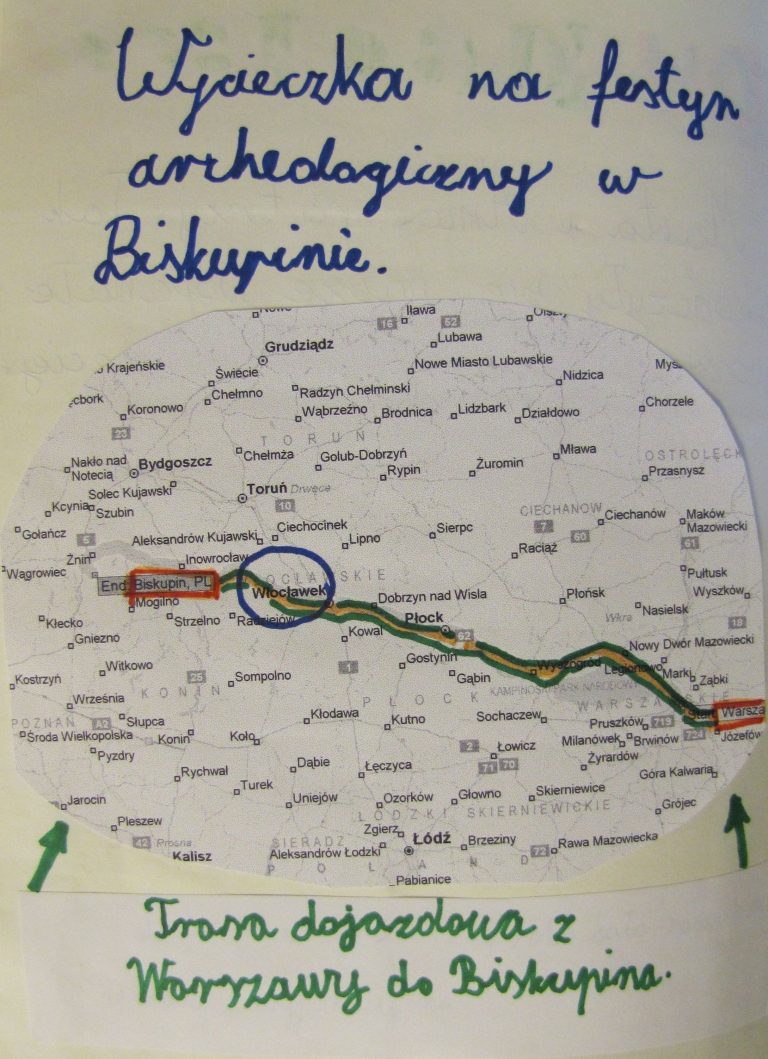 Wycieczka na festyn
archeologiczny w
Biskupinie.
Iława
16 62
Lubawa
Grudziądz
Krajeńskie
Świecie
Nowe Miasto Lubawskie
Nidzica
Chełmno
Radzyn Chelminski
Koronowo
Wąbrzeźno Brodnica Lidzbark Działdowo
Chorzele
23
TORUŃ
Chełmża
Golub-Dobrzyń
Mława
OSTROŁĘCK
Nakło nad
Notecią
Bydgoszcz
Rypin
Żuromin
Przasnysz
Solec Kujawski
Toruń Drwęca
10
Kcynia
Szubin
CIECHANOW
Ciechanów
Maków
Mazowiecki
Gołańcz
6
Aleksandrów Kujawski
Ciechocinek
Lipno
Sierpc
7
60
61
Żnin
Inowrocław
Raciąż
Wagrowiec
Pułtusk
End: Biskupin, PL
Włocławek
Dobrzyn nad Wisla
Płońsk
Wyszków
Mogilno
Nasielsk
Kłecko
Strzelno
Radziejów
Płock
Wkra
18
Gniezno
Kowal
62
Nowy Dwór Mazowiecki
Witkowo
1
Gostynin
Wyszogród
Legionowo
Marki
Ząbki
Kostrzyń
25
Sompolno
Gąbin
KAMPINOSKI PARK NARODOWY
KONIN
PŁOCK
WARSZAWSKIE
Września
Start Warsza
POZNAŃ A2
Słupca
Kłodawa
Kutno
Sochaczew
Pruszków
719
Środa Wielkopolska
Konin
Koło
Milanówek
Brwinów
724
Józefów
Pyzdry
2
Łowicz
Żyrardów
Rychwal
Dąbie
Łęczyca
71 70
Góra Kalwaria
Turek
Jarocin
Uniejów
Ozorków
Głowno
Skierniewice
Grójec
Pleszew
ŁÓDZKI SKIERNIEWICKIE
42 Prosna
SIERADZ
Zgierz
Łódź
Brzeziny
72
Rawa Mazowiecka
Kalisz
Aleksandrów Łodzki
POLAND
Pabianice
Trasa dojazdowa z
Warszawy do Biskupina.